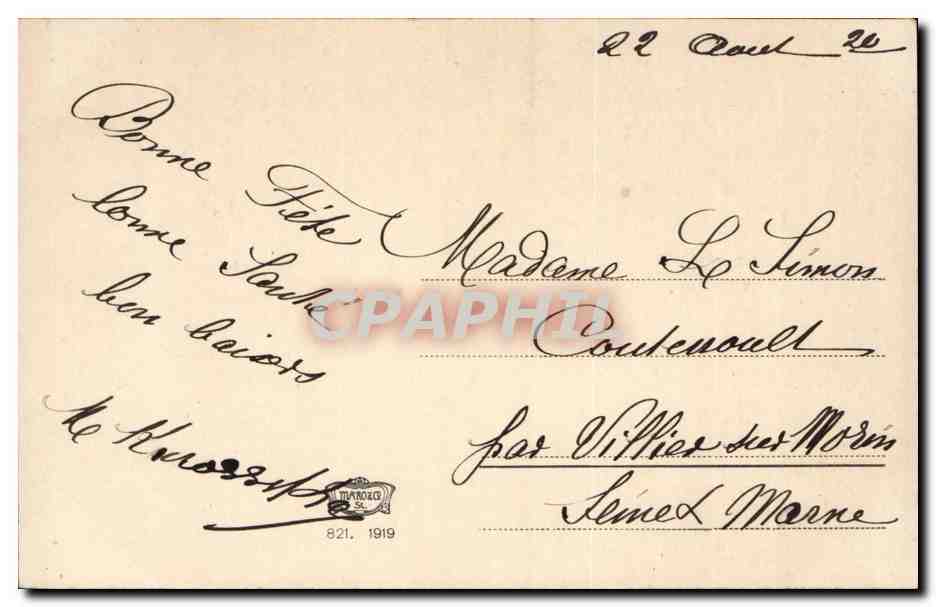 22 Aout 20
Bonne Fête
bonne Santé
bon baisers
Madame L Simon
Coutenoult
par Villier sur Morin
Seine & Marne
CPAPHIL
821. 1919